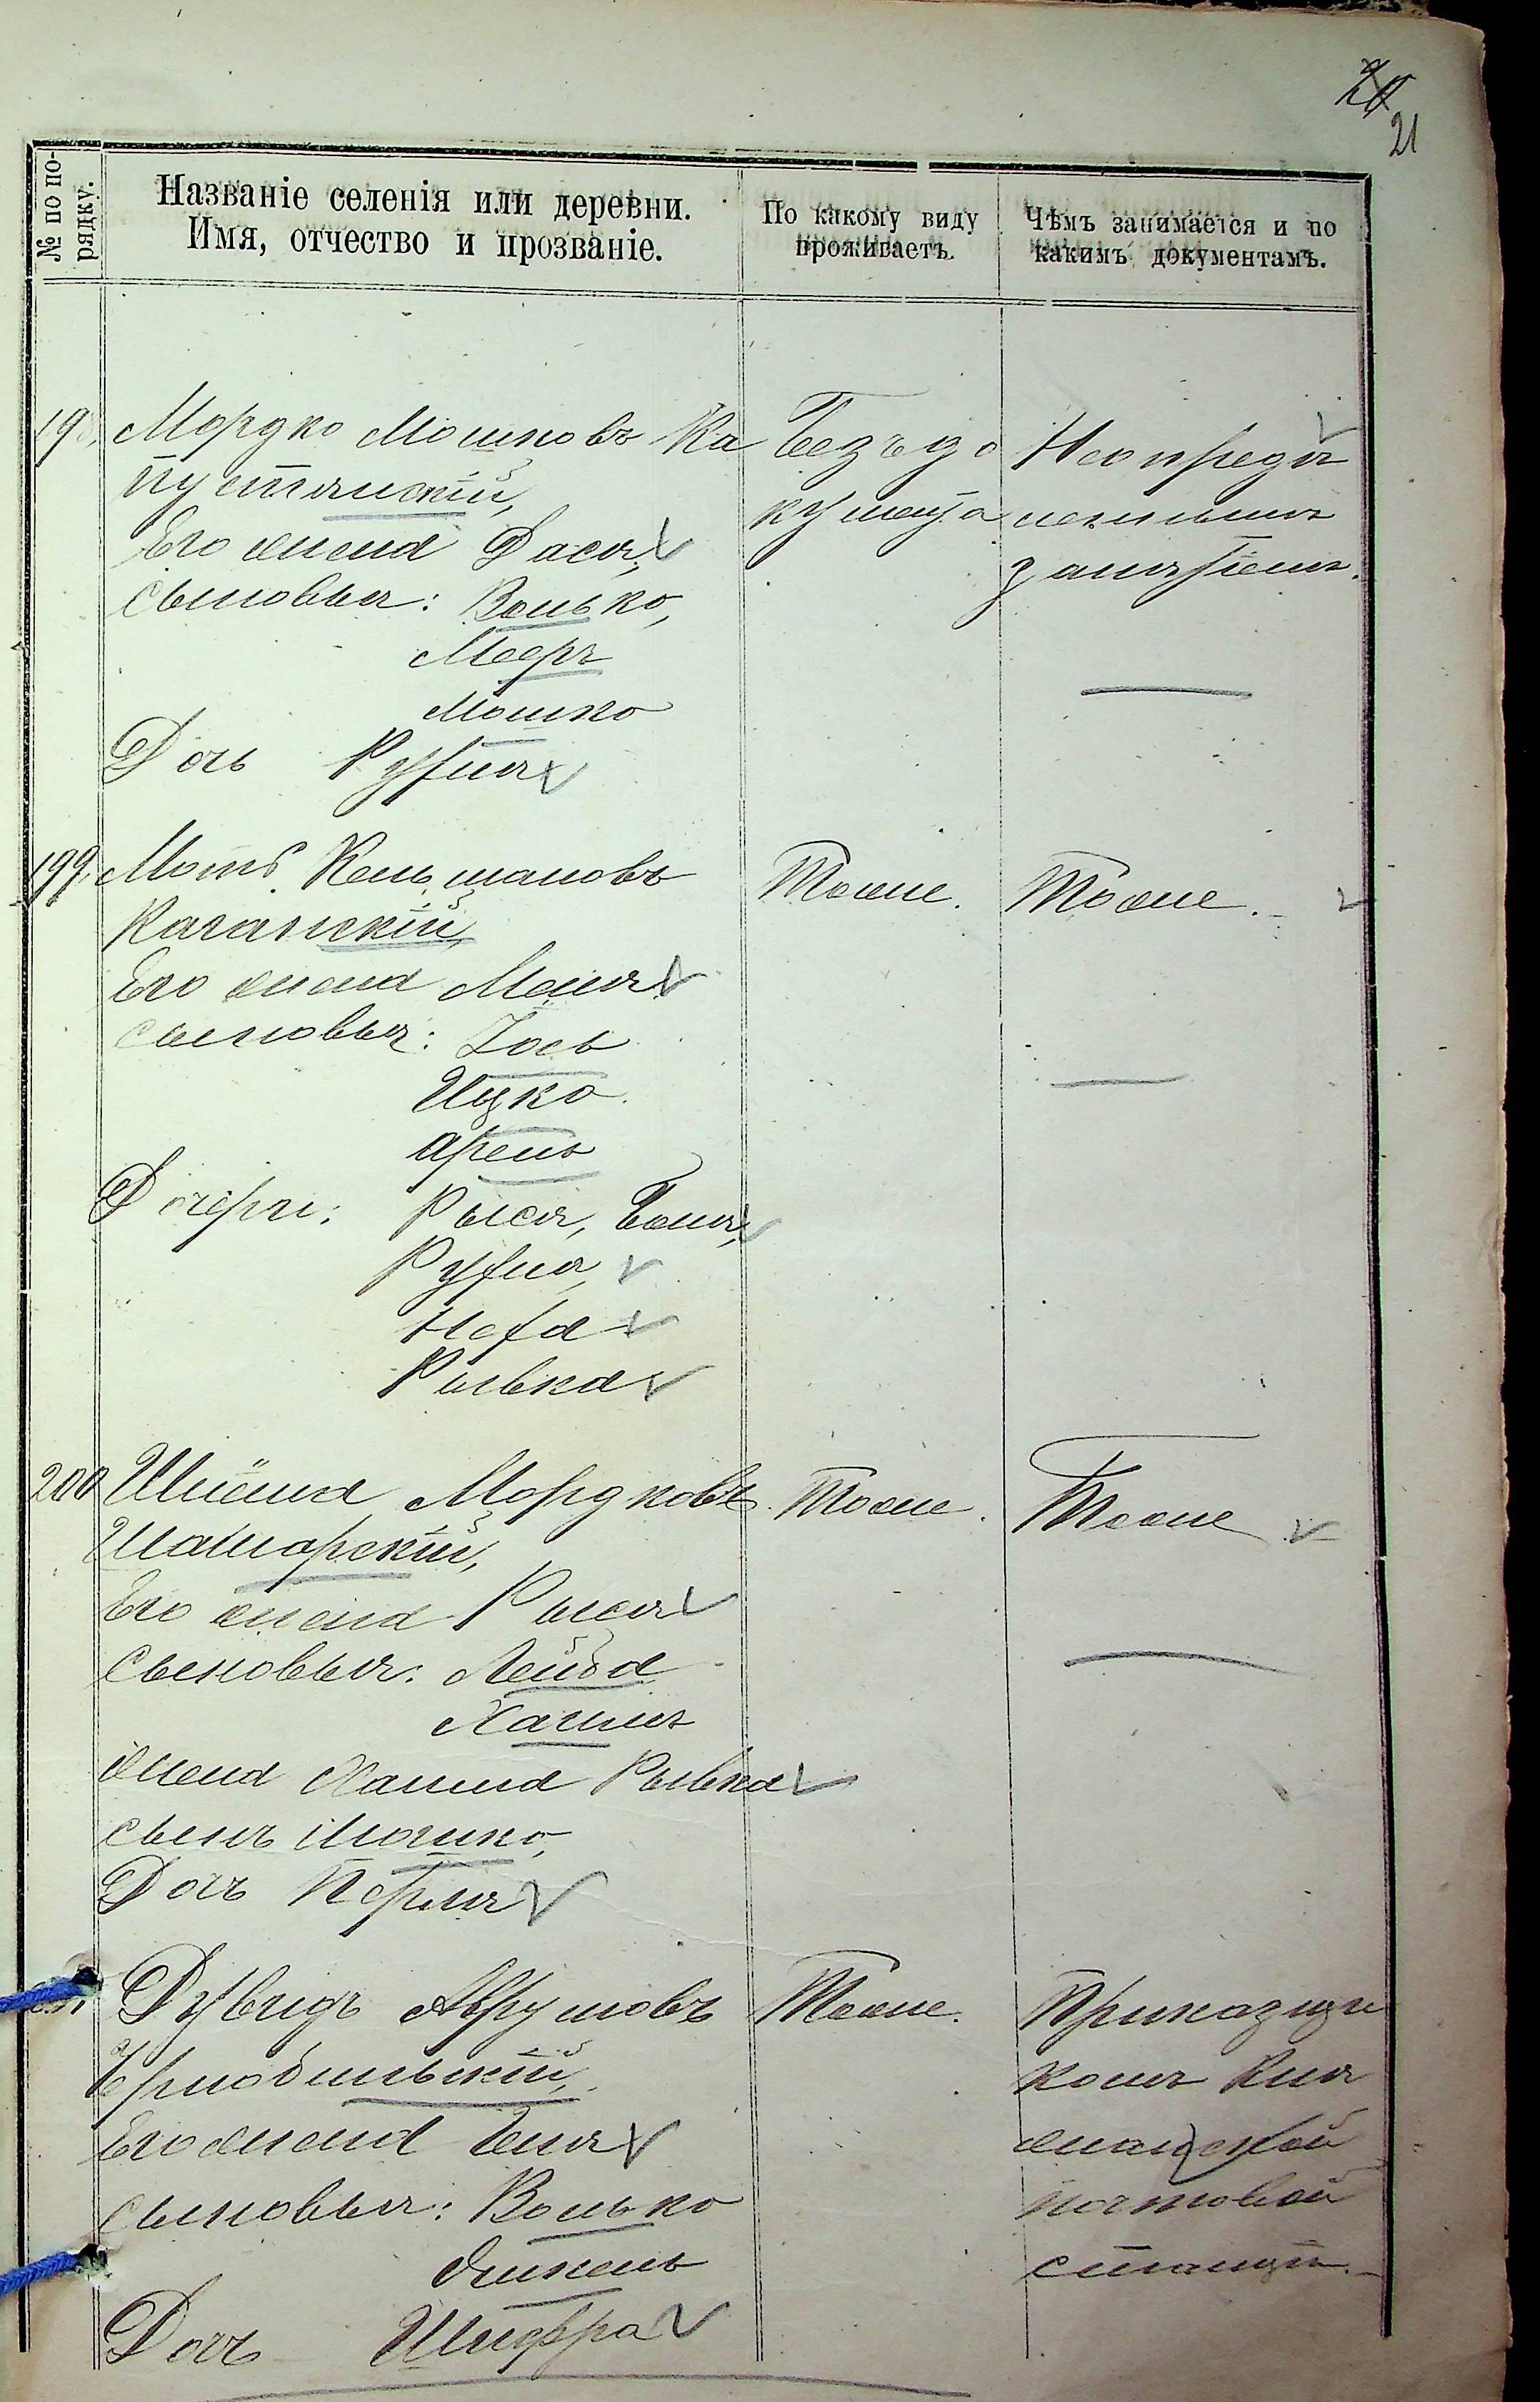 21
№ по по-
рядку.
Названіе селенія или деревни.
Имя, отчество и прозваніе.
По какому виду
проживаетъ.
Чѣмъ занимается и по
какимъ документамъ.
198, Мордко Мошковъ Ка
пустянскій,
Его жена Дася,
Сыновья: Волько,
Мееръ
Мошко
Дочь Рухля
Безъ до
кумента
Неопредѣ
леннымъ
занятіемъ.
199, Мот Кельмановъ
Каганскій,
Его жена Маля
сыновья: Іось
Ицко
Аренъ
Дочери: Рыся, Беня,
Рухля,
Неха
Ривка
Тоже.
Тоже.
200 Шлёма Мордковъ
Шаморскій,
Его жена Рыся
Сыновья: Лейба
Хаимъ
жена Хаима Рывка
сынъ Мошко,
Дочь Перля
Тоже.
Тоже
Дувидъ Аврумовъ
Чрнобильскій,
Его жена Беня
Сыновья: Волько
Янкель
Дочь Шифра
Тоже.
Приказщи
комъ Кня
жанской
почтовой
станціи.